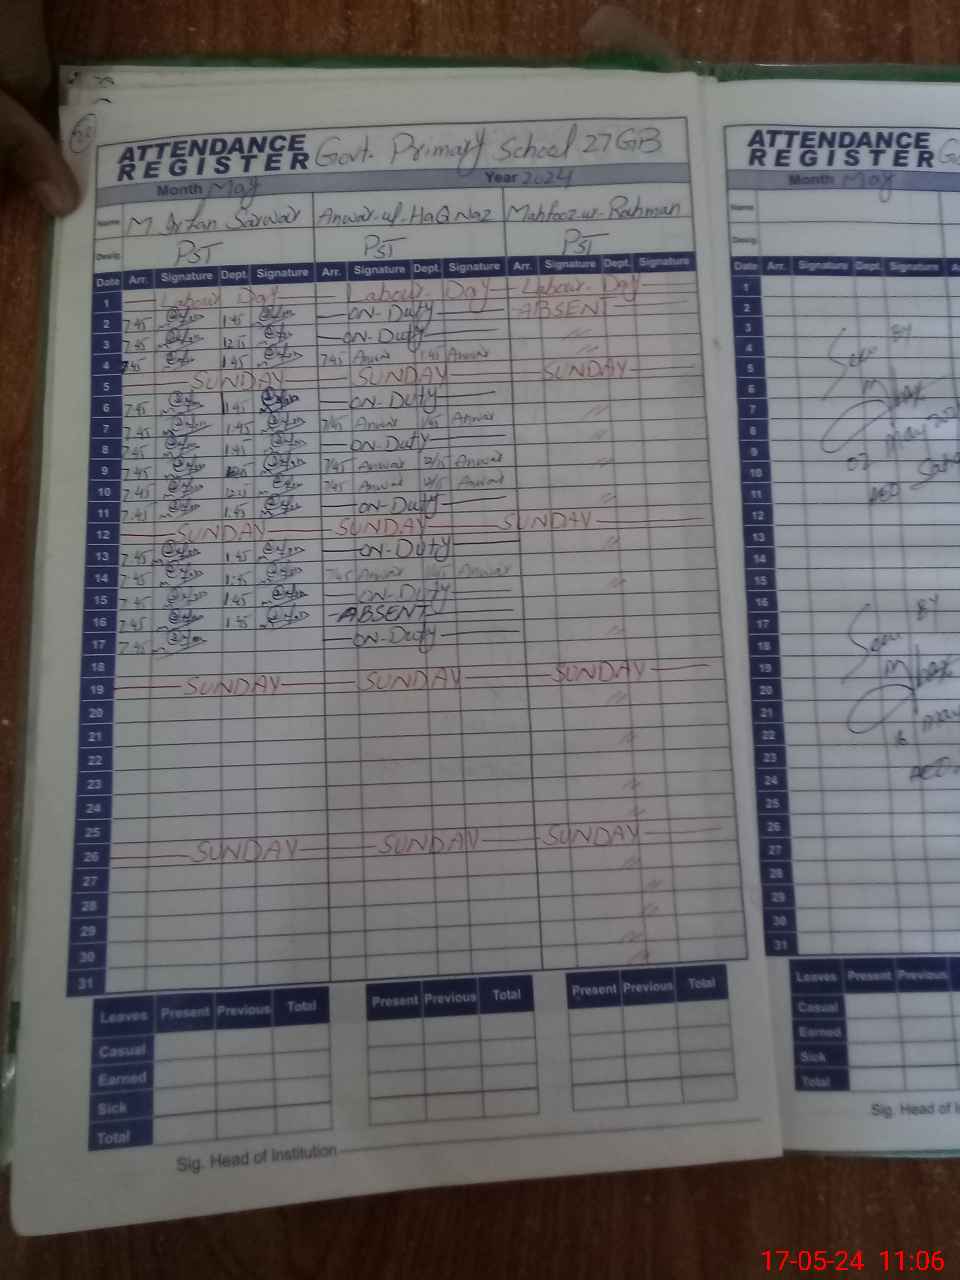 ATTENDANCE REGISTER Govt. Primary School 27GB
Month May Year 2024
Name M. Irfan Sarwar Anwar-ul-HaQ Naz Mahfooz-ur-Rahman
Desig. PST PST PST
Date Arr. Signature Dept. Signature Arr. Signature Dept. Signature Arr. Signature Dept. Signature
1 Labour Day Labour Day Labour Day
2 7.45 1.45 ON-Duty ABSENT
3 7.45 12.15 ON-Duty
4 7.45 1.45 7.45 Anwar 1.45 Anwar
5 SUNDAY SUNDAY SUNDAY
6 7.45 1.45 ON-Duty
7 7.45 1.45 7.45 Anwar 1.45 Anwar
8 7.45 1.45 ON-Duty
9 7.45 7.45 Anwar Anwar
10 7.45 12.15 7.45 Anwar Anwar
11 7.45 1.45 ON-Duty
12 SUNDAY SUNDAY SUNDAY
13 7.45 1.45 ON-Duty
14 7.45 1.45 7.45 Anwar Anwar
15 7.45 1.45 ON-Duty
16 7.45 1.45 ABSENT
17 7.45 ON-Duty
18
19 SUNDAY SUNDAY SUNDAY
20
21
22
23
24
25
26 SUNDAY SUNDAY SUNDAY
27
28
29
30
31
Leaves Present Previous Total Present Previous Total Present Previous Total
Casual
Earned
Sick
Total
Sig. Head of Institution
ATTENDANCE REGISTER
Month May
Name
Desig.
Date Arr. Signature Dept. Signature
1
2
3
4
5
6
7
8
9
10
11
12
13
14
15
16
17
18
19
20
21
22
23
24
25
26
27
28
29
30
31
Seen BY
02 May
Seen BY
Leaves Present Previous
Casual
Earned
Sick
Total
Sig. Head of
17-05-24 11:06